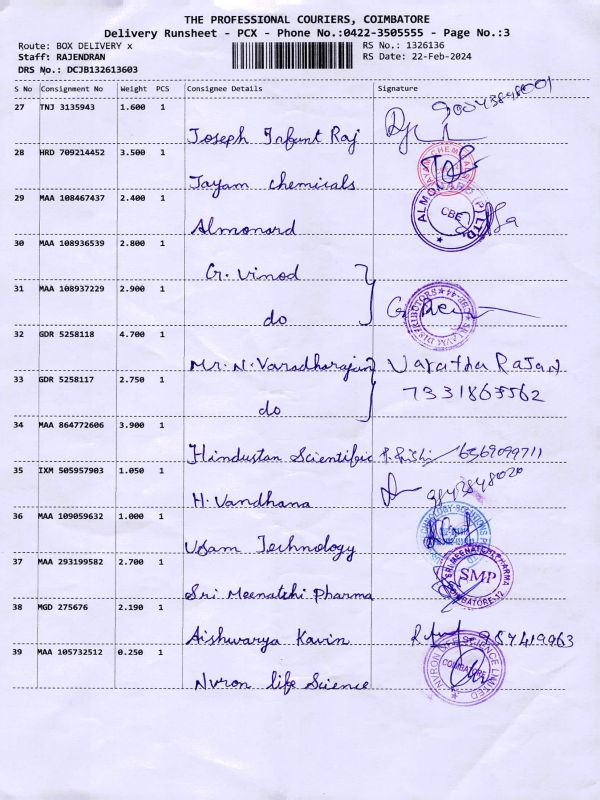 THE PROFESSIONAL COURIERS, COIMBATORE
Delivery Runsheet - PCX - Phone No.:0422-3505555 - Page No.:3
Route: BOX DELIVERY x
RS No.: 1326136
Staff: RAJENDRAN
RS Date: 22-Feb-2024
DRS No.: DCJB132613603
S No Consignment No Weight PCS Consignee Details Signature
27 TNJ 3135943 1.600 1
Joseph Infant Raj
28 HRD 709214452 3.500 1
Jayam chemicals
29 MAA 108467437 2.400 1
Almonard ALMONARD (P) LTD. CBE
30 MAA 108936539 2.800 1
G. Vinod
31 MAA 108937229 2.900 1
do
32 GDR 5258118 4.700 1
Mr. N. Varadharajan Varatha Rajan
33 GDR 5258117 2.750 1
do 7331863562
34 MAA 864772606 3.900 1
Hindustan Scientific 6369099711
35 IXM 505957903 1.050 1
H. Vandhana 9843848020
36 MAA 109059632 1.000 1
Usam Technology
37 MAA 293199582 2.700 1
Sri Meenatchi Pharma SRI MEENATCHI PHARMA SMP COIMBATORE-12
38 MGD 275676 2.190 1
Aishwarya Kavin
39 MAA 105732512 0.250 1
Nvron life Science NVRON LIFE SCIENCE LIMITED COIMBATORE